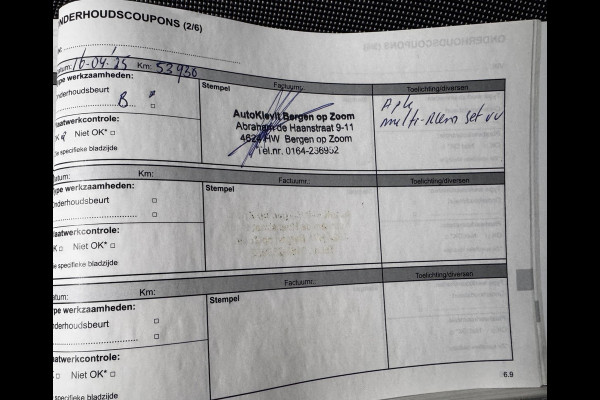 NDERHOUDSCOUPONS (2/6)
atum: 16-04-25 Km: 53930 Factuurnr.: Toelichting/diversen
ype werkzaamheden:
nderhoudsbeurt
B
aatwerkcontrole:
Niet OK*
e specifieke bladzijde
Stempel
AutoKievit Bergen op Zoom
Abraham de Haanstraat 9-11
4624 HW Bergen op Zoom
Tel.nr. 0164-236952
Apk
multi-riem set vv
atum: Km: Factuurnr.: Toelichting/diversen
ype werkzaamheden:
nderhoudsbeurt
aatwerkcontrole:
K Niet OK*
e specifieke bladzijde
Stempel
atum: Km: Factuurnr.: Toelichting/diversen
ype werkzaamheden:
nderhoudsbeurt
aatwerkcontrole:
K Niet OK*
e specifieke bladzijde
Stempel
6.9